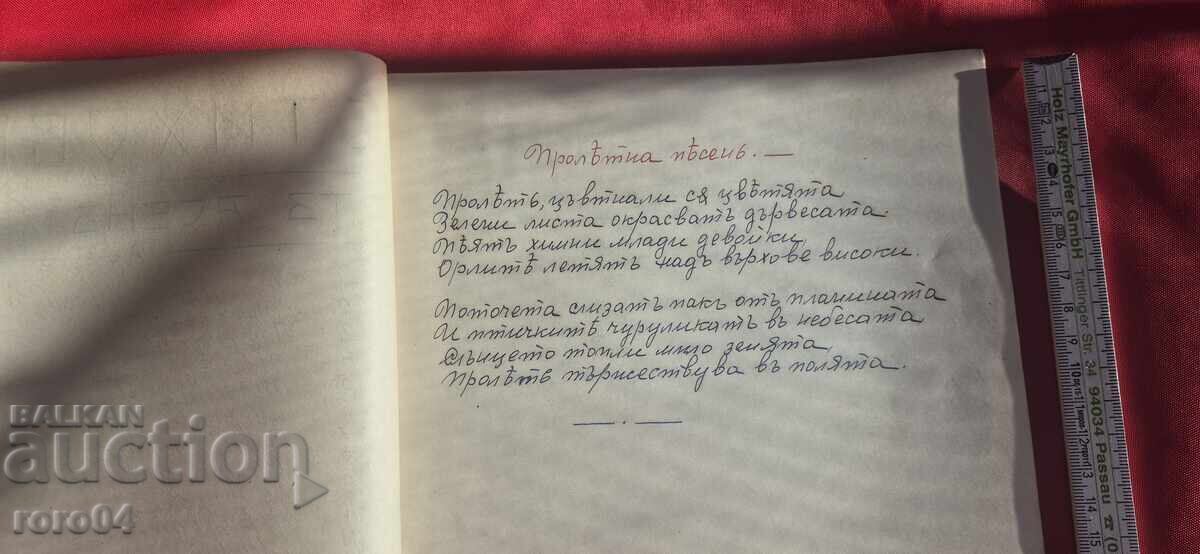 Пролѣтна пѣсень. —
Пролѣть, цъвтнали сѫ цвѣтята
Зелени листа окрасватъ дървесата.
Пѣятъ химни млади девойки,
Орлитѣ летятъ надъ върхове високи.
Поточета слизатъ пакъ отъ планината
И птичкитѣ чуруликатъ въ небесата
Слънцето топли мило земята,
Пролѣть тържествува въ полята.
BALKAN
auction
roro04
Holz Mayrhofer GmbH Tittlinger Str. 34 94034 Passau